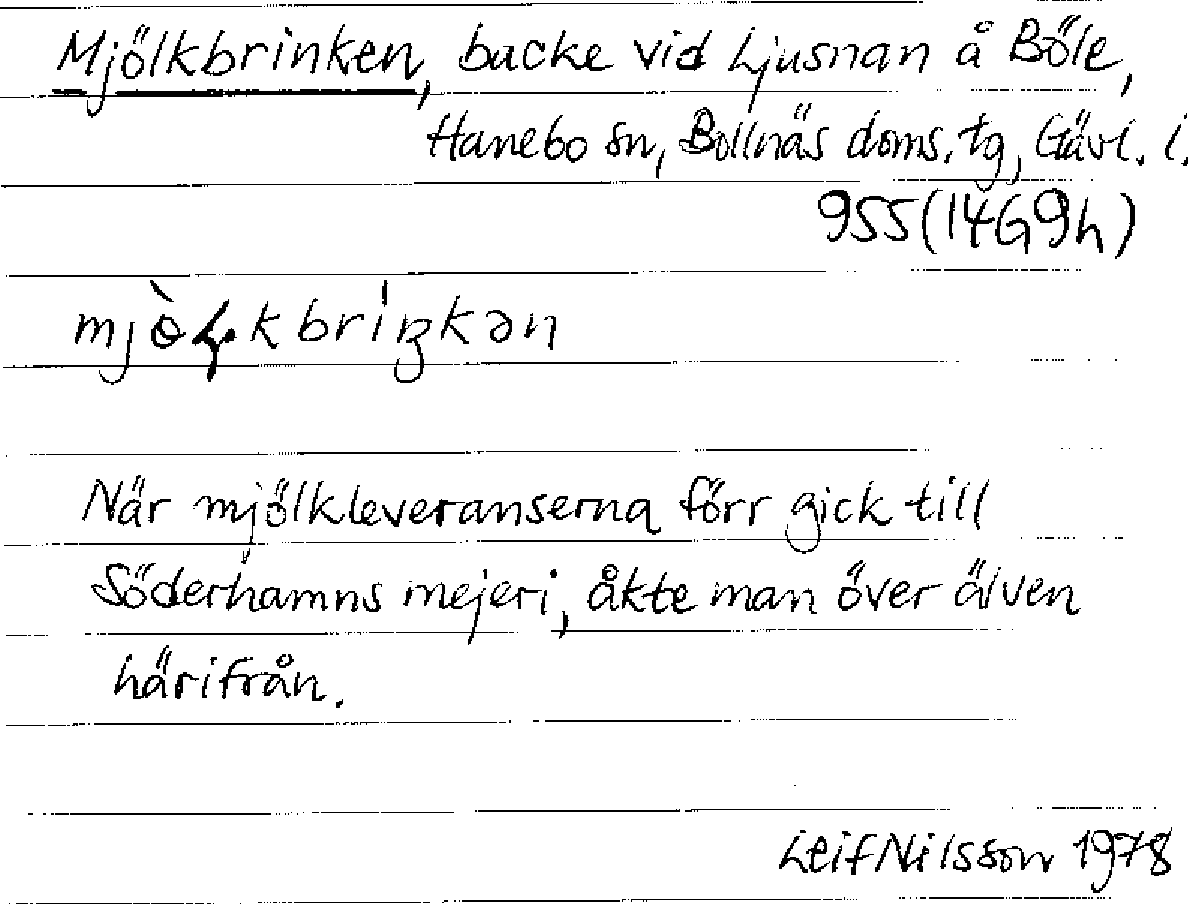 Mjölkbrinken, backe vid Ljusnan å Böle,
Hanebo sn, Bollnäs doms. tg, Gävl. l.
955 (14G9h)
När mjölkleveranserna förr gick till
Söderhamns mejeri, åkte man över älven
härifrån.
Leif Nilsson 1978